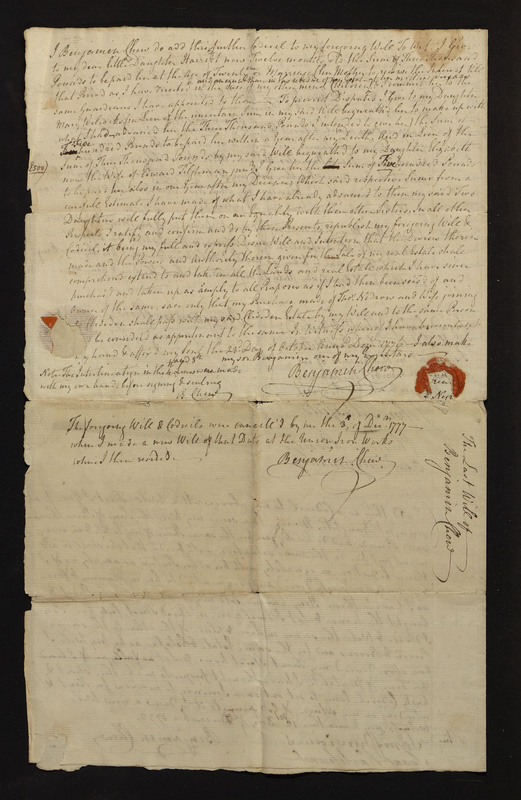 I Benjamin Chew do add this further Codicil to my foregoing Will To Wit I Give
to my dear little Daughter Harriot now Twelve months Old the Sum of Three Thousand
Pounds to be paid her at the Age of Twenty or Marriage
that Period as I have directed in the Case of my other minor Children &
same Guardians I have appointed to them To prevent Disputes I Give to my Daughter
Mary Wilcocks in Lieu of the pecuniary Sum in my said Will bequeathed her to make up with
what I had advanced her the Three Thousand Pounds I intended to give her, the Sum of
Five hundred Pounds to be paid her within a Year after my Death, And in Lieu of the
Sum of Three Thousand Pounds by my said Will bequeathed to my Daughter Elizabeth
£500
now the Wife of Edward Tilghman I Give her the Sum of Five hundred Pounds
to be paid her also in one Year after my Decease which said respective Sums from a
careful Estimate I have made of what I have already advanced to them my said Two
Daughters will fully put them on an equality with their other Sisters. In all other
Respects I ratify and confirm and do by these Presents republish my foregoing Will &
Codicil, It being my full and express Desire Will and Intention that the Devises therein
made and the Powers and Authority therein given for the Sale of my real Estate shall
comprehend extend to and take in all the Lands and real Estate which I have since
purchased and taken up as amply to all Purposes as if I had then been seized of and
Owner of the same, save only that my Purchase made of and Wife joining
to Cliveden shall pass with my said Cliveden Estate by my Will and to the same Person
be considered as appurtenant to the same. In Witness whereof I have hereunto set
my hand & affixed my Seal the 24 Day of October Anno Domini 1776 I also make
my son Benjamin one of my Executors
Note The Interlineation in the Lines were made
with my own hands before signing & sealing
B. Chew
Benjamin Chew
The foregoing Will & Codicils were cancell'd by me the 3d of Decr 1777
when I made a new Will of that Date at the Union Iron Works
where I then resided.
Benjamin Chew
The Last Will of
Benjamin Chew